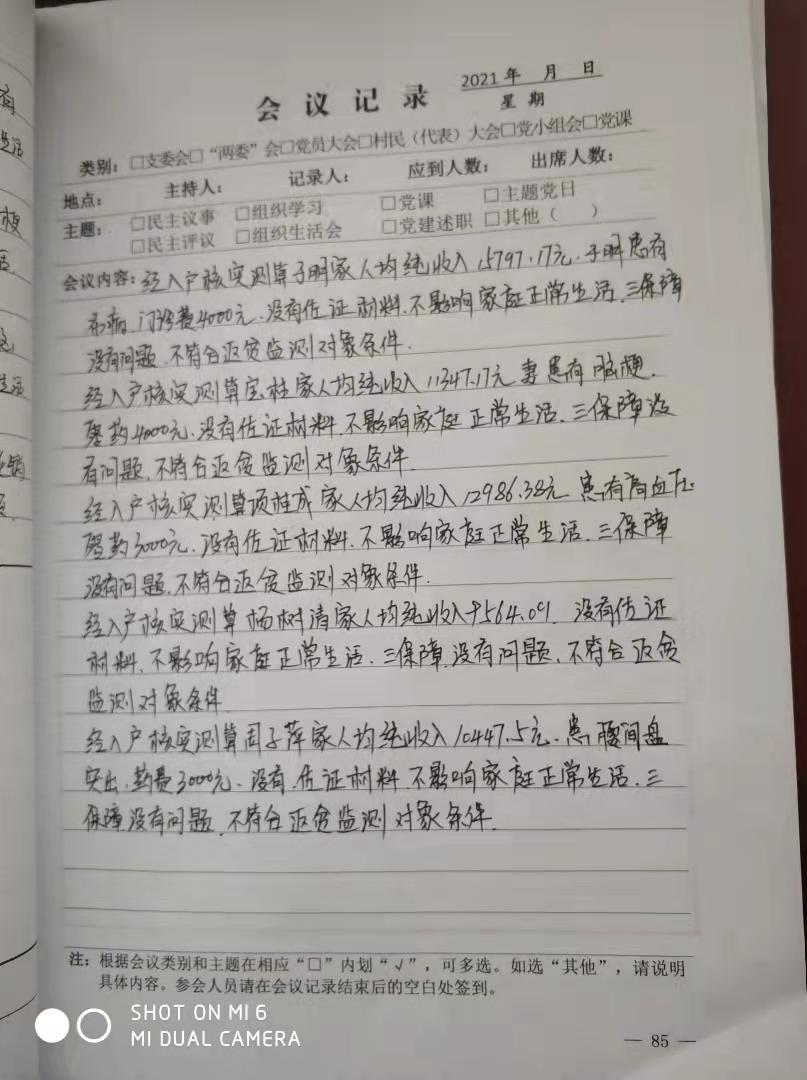 会议记录
2021年 月 日
星 期
类别：□支委会□“两委”会□党员大会□村民（代表）大会□党小组会□党课
地点： 主持人： 记录人： 应到人数： 出席人数：
主题： □民主议事 □组织学习 □党课 □主题党日
□民主评议 □组织生活会 □党建述职 □其他（ ）
会议内容：经入户核实测算子明家人均纯收入15797.17元.子明患有
布病.门诊费4000元.没有佐证材料.不影响家庭正常生活.三保障
没有问题.不符合返贫监测对象条件.
经入户核实测算宝柱家人均纯收入11347.17元 妻患有脑梗.
买药4000元.没有佐证材料.不影响家庭正常生活.三保障没
有问题.不符合返贫监测对象条件.
经入户核实测算项桂成家人均纯收入12986.38元 患有高血压
买药3000元.没有佐证材料.不影响家庭正常生活.三保障
没有问题.不符合返贫监测对象条件.
经入户核实测算杨树清家人均纯收入9564.09. 没有佐证
材料.不影响家庭正常生活.三保障.没有问题.不符合返贫
监测对象条件.
经入户核实测算周子萍家人均纯收入10447.5元.患腰间盘
突出.药费3000元.没有佐证材料.不影响家庭正常生活.三
保障没有问题.不符合返贫监测对象条件.
注：根据会议类别和主题在相应“□”内划“√”，可多选。如选“其他”，请说明
具体内容。参会人员请在会议记录结束后的空白处签到。
SHOT ON MI 6
MI DUAL CAMERA
— 85 —